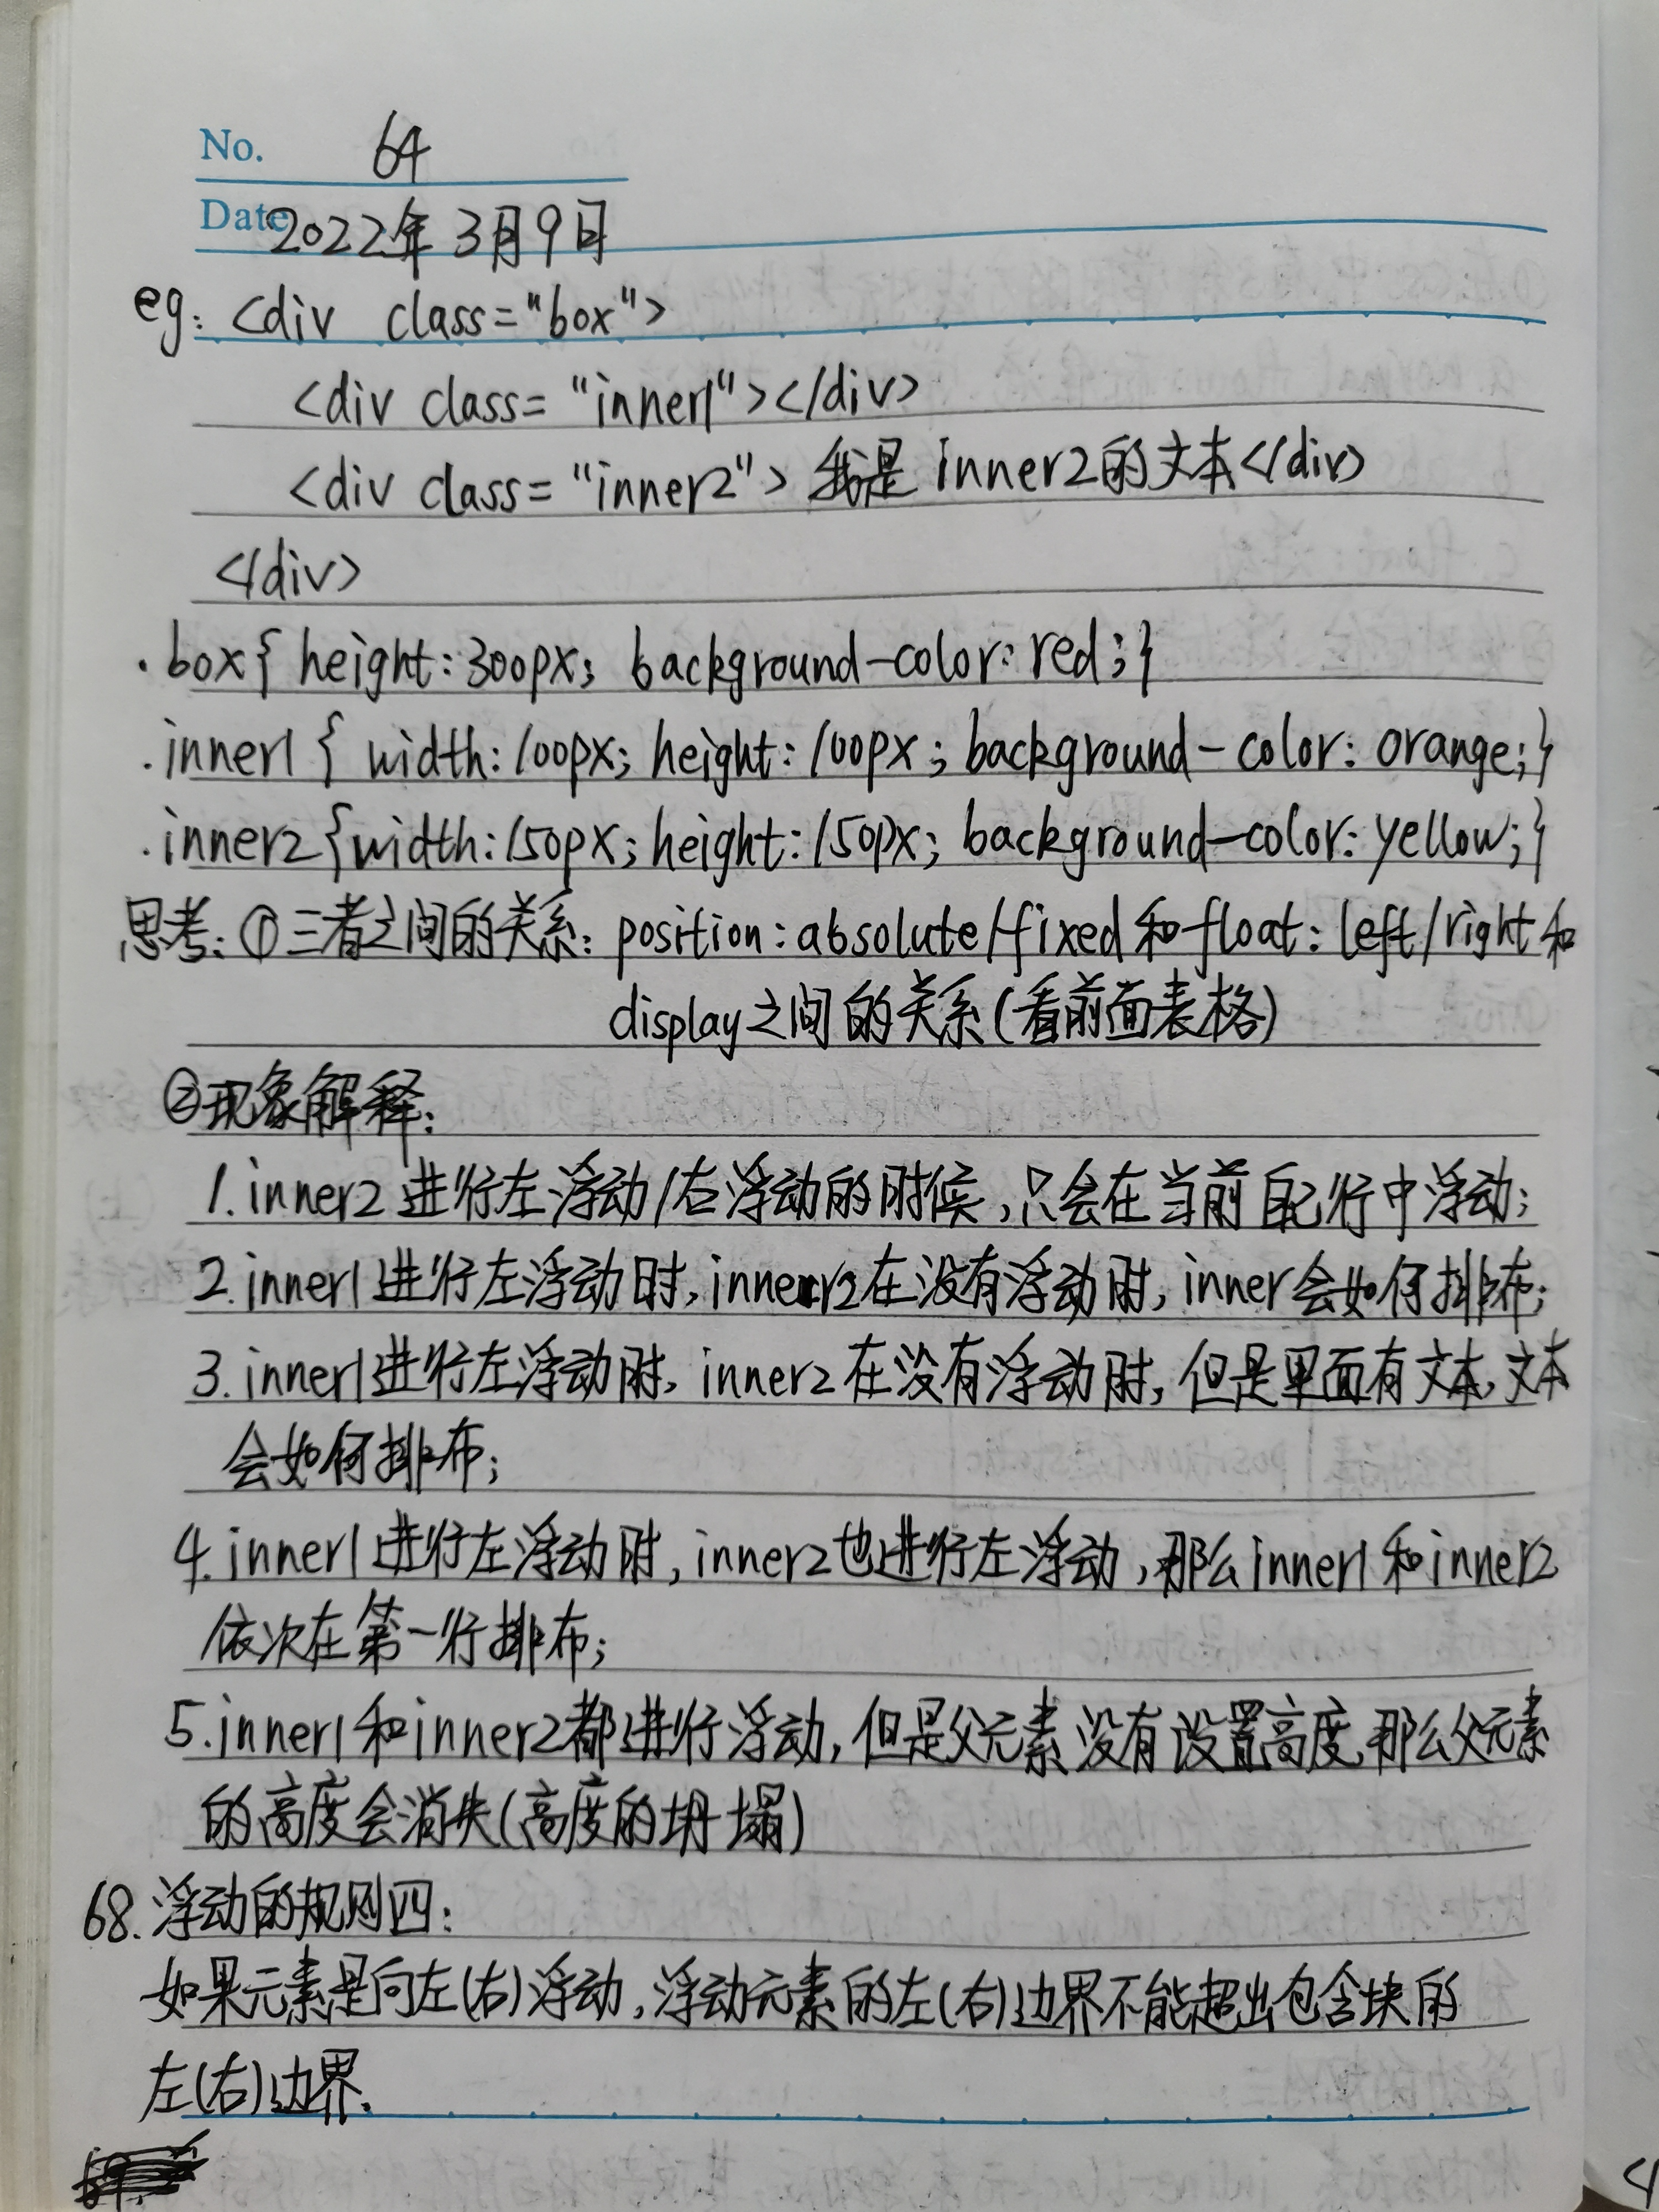 No. 64
Date 2022年3月9日
eg: <div class="box">
<div class="inner1"></div>
<div class="inner2">我是inner2的文本</div>
</div>
.box{ height:300px; background-color:red;}
.inner1 { width:100px; height:100px; background-color: orange;}
.inner2 {width:150px; height:150px; background-color: yellow;}
思考: ①三者之间的关系: position:absolute/fixed和float: left/right和
display之间的关系(看前面表格)
②现象解释:
1. inner2进行左浮动/右浮动的时候,只会在当前自己行中浮动;
2. inner1进行左浮动时, inner2在没有浮动时, inner会如何排布;
3. inner1进行左浮动时, inner2在没有浮动时, 但是里面有文本, 文本
会如何排布;
4. inner1进行左浮动时, inner2也进行左浮动, 那么inner1和inner2
依次在第一行排布;
5. inner1和inner2都进行浮动, 但是父元素没有设置高度, 那么父元素
的高度会消失(高度的坍塌)
68. 浮动的规则四:
如果元素是向左(右)浮动, 浮动元素的左(右)边界不能超出包含块的
左(右)边界.